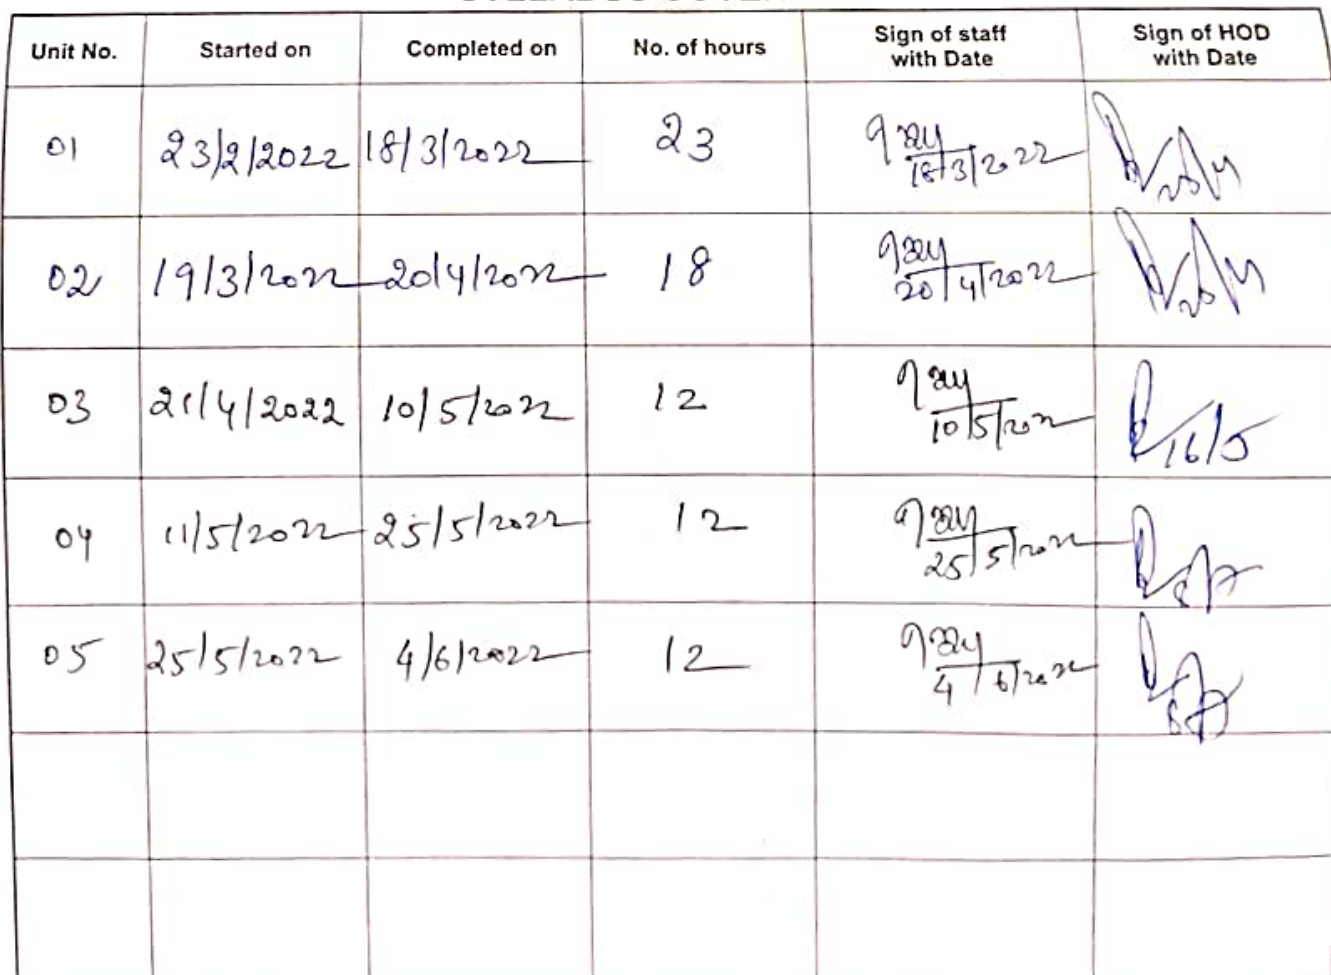 Unit No. Started on Completed on No. of hours Sign of staff with Date Sign of HOD with Date
01 23/2/2022 18/3/2022 23 18/3/2022
02 19/3/2022 20/4/2022 18 20/4/2022
03 21/4/2022 10/5/2022 12 10/5/2022 16/5
04 11/5/2022 25/5/2022 12 25/5/2022
05 25/5/2022 4/6/2022 12 4/6/2022